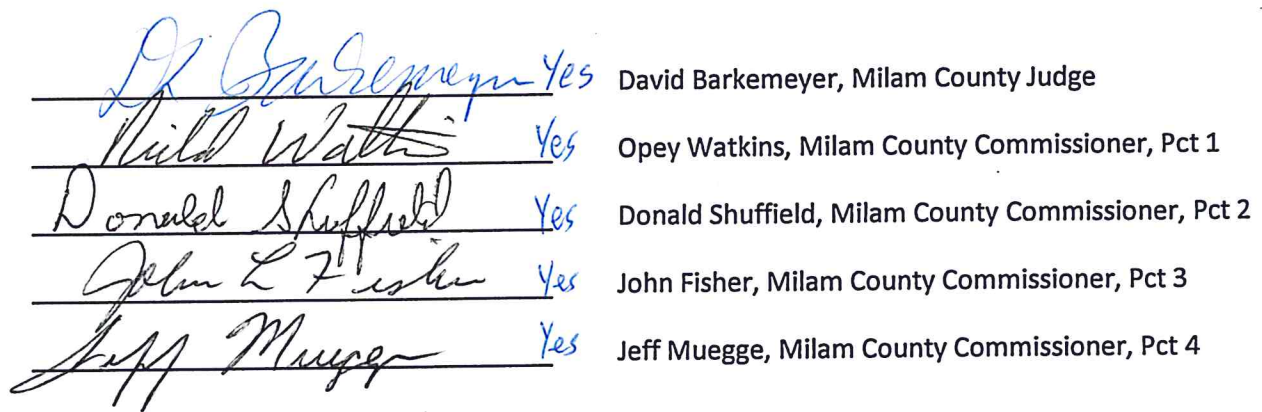 DR Barkemeyer Yes David Barkemeyer, Milam County Judge
Watkins Yes Opey Watkins, Milam County Commissioner, Pct 1
Donald Shuffield Yes Donald Shuffield, Milam County Commissioner, Pct 2
John L Fisher Yes John Fisher, Milam County Commissioner, Pct 3
Jeff Muegge Yes Jeff Muegge, Milam County Commissioner, Pct 4